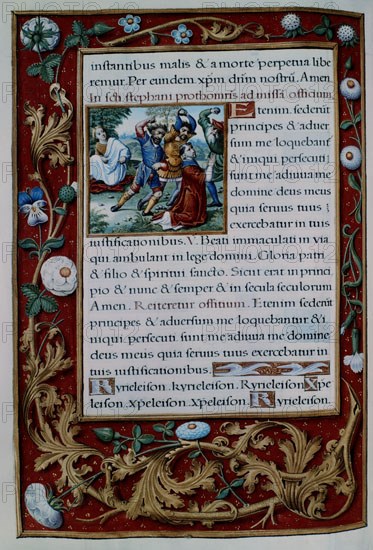 instantibus malis & a morte perpetua libe
remur. Per eundem xpm dñm nostrũ. Amen.
In scti stephani prothomris ad missã officium
Etenim sederũt
principes & aduer
sum me loquebant
& iniqui persecuti
sunt me adiuua me
domine deus meus
quia seruus tuus
exercebatur in tuis
iustificationibus. V. Beati immaculati in via
qui ambulant in lege domini. Gloria patri
& filio & spiritui sancto. Sicut erat in princi
pio & nunc & semper & in secula seculorum
Amen. Reiteretur offitium. Etenim sederũt
principes & aduersum me loquebantur & i
niqui persecuti sunt me adiuua me domine
deus meus quia seruus tuus exercebatur in
tuis iustificationibus.
Kyrieleison. kyrieleison. Kyrieleison Xpe
leison. Xpeleison. Xpeleison. Kyrieleison.